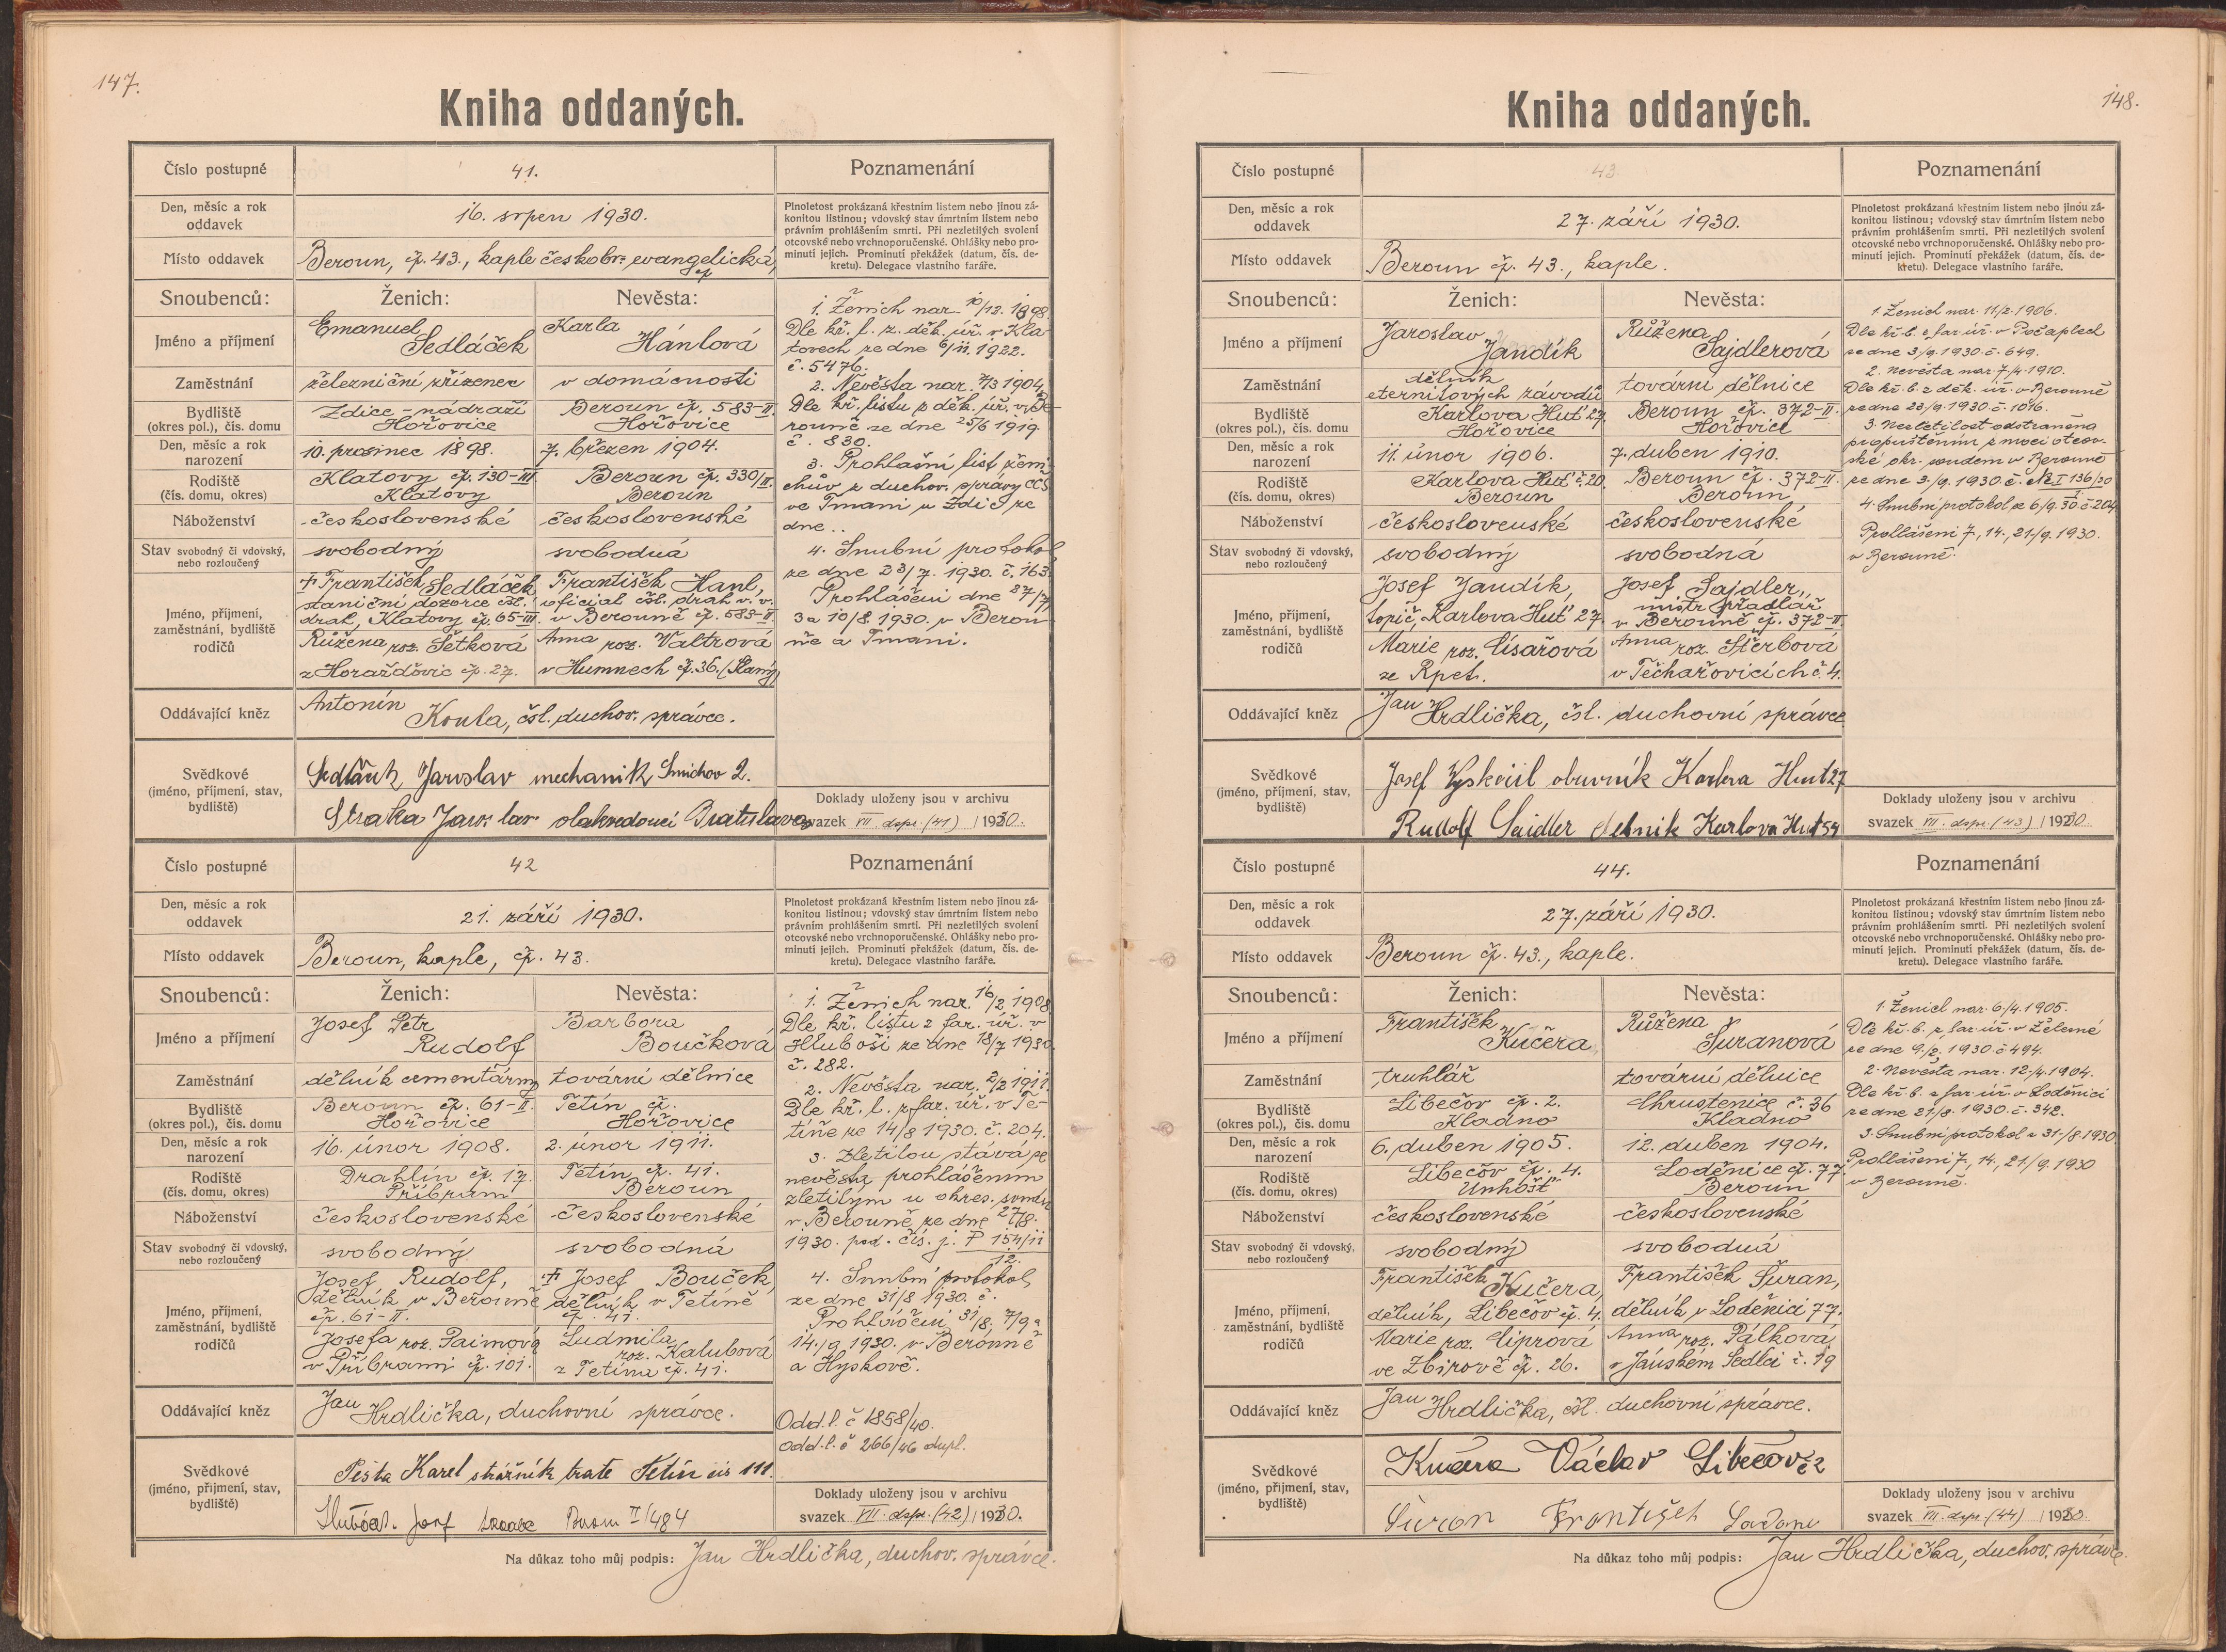 147.
Kniha oddaných.
Číslo postupné
41.
Poznamenání
Den, měsíc a rok
oddavek
16. srpen 1930.
Plnoletost prokázaná křestním listem nebo jinou zá-
konitou listinou; vdovský stav úmrtním listem nebo
právním prohlášením smrti. Při nezletilých svolení
otcovské nebo vrchnoporučenské. Ohlášky nebo pro-
minutí jejich. Prominutí překážek (datum, čís. de-
kretu). Delegace vlastního faráře.
Místo oddavek
Beroun, čp. 43., kaple českobr. evangelická
Snoubenců:
Ženich:
Nevěsta:
Jméno a příjmení
Emanuel
Sedláček
Karla
Hánlová
Zaměstnání
železniční zřízenec
v domácnosti
Bydliště
(okres pol.), čís. domu
Zdice - nádraží
Hořovice
Beroun čp. 583-II.
Hořovice
Den, měsíc a rok
narození
10. prosinec 1898.
7. březen 1904.
Rodiště
(čís. domu, okres)
Klatovy čp. 130-III
Klatovy
Beroun čp. 330/II.
Beroun
Náboženství
československé
československé
Stav svobodný či vdovský,
nebo rozloučený
svobodný
svobodná
Jméno, příjmení,
zaměstnání, bydliště
rodičů
† František Sedláček
staniční dozorce čsl.
drah, Klatovy čp. 65-III.
Růžena roz. Šetková
z Horažďovic čp. 27.
František Hanl,
oficial čsl. drah v. v.
v Berouně čp. 583-II.
Anna roz. Waltrová
v Humnech čp. 36. (Slaný)
1. Ženich nar. 10/12. 1898.
Dle kř. l. z. děk. úř. v Kla-
tovech ze dne 6/11. 1922.
č. 5476.
2. Nevěsta nar. 7/3 1904
Dle kř. listu z děk. úř. v Be-
rouně ze dne 25/6 1919.
č. 830.
3. Prohlašní list ženi-
chův z duchov. správy CČS
ve Tmani u Zdic ze
dne..
4. Snubní protokol
ze dne 23/7. 1930. č. 163.
Prohlášení dne 27/7,
3 a 10/8. 1930. v Berou-
ně a Tmani.
Oddávající kněz
Antonín
Koula, čsl. duchov. správce.
Svědkové
(jméno, příjmení, stav,
bydliště)
Jaroslav mechanik Smichov 2.
Straka Jaroslav Bratislava
Doklady uloženy jsou v archivu
svazek VII. dspr. (41) 1930.
Číslo postupné
42
Poznamenání
Den, měsíc a rok
oddavek
21. září 1930.
Plnoletost prokázaná křestním listem nebo jinou zá-
konitou listinou; vdovský stav úmrtním listem nebo
právním prohlášením smrti. Při nezletilých svolení
otcovské nebo vrchnoporučenské. Ohlášky nebo pro-
minutí jejich. Prominutí překážek (datum, čís. de-
kretu). Delegace vlastního faráře.
Místo oddavek
Beroun, kaple, čp. 43.
Snoubenců:
Ženich:
Nevěsta:
Jméno a příjmení
Josef Petr
Rudolf
Barbora
Boučková
Zaměstnání
dělník cementárny
tovární dělnice
Bydliště
(okres pol.), čís. domu
Beroun čp. 61-II.
Hořovice
Tetín čp.
Hořovice
Den, měsíc a rok
narození
16. únor 1908.
2. únor 1911.
Rodiště
(čís. domu, okres)
Drahlín čp. 17.
Příbram
Tetín čp. 41.
Beroun
Náboženství
československé
československé
Stav svobodný či vdovský,
nebo rozloučený
svobodný
svobodná
Jméno, příjmení,
zaměstnání, bydliště
rodičů
Josef Rudolf,
dělník v Berouně
čp. 61-II.
Josefa roz. Paimová
v Příbrami čp. 101.
† Josef Bouček
dělník v Tetíně
čp. 41.
Ludmila
roz. Kalubová
z Tetína čp. 41.
1. Ženich nar. 16/2 1908
Dle kř. listu z far. úř. v
Hluboši ze dne 18/7 1930
č. 282.
2. Nevěsta nar. 2/2 1911.
Dle kř. l. z far. úř. v Te-
tíně ze 14/8 1930. č. 204.
3. Zletilou stává se
nevěsta prohlášením
zletilým u okres. soudu
v Berouně ze dne 27/8.
1930. pod. čís. j. P 154/11
12.
4. Snubní protokol
ze dne 31/8 1930. č.
Prohlášení 31/8, 7/9 a
14./9 1930. v Berouně
a Hyskově.
Oddávající kněz
Jan
Hrdlička, duchovní správce.
Odd. l. č 1858/40.
Odd. l. č 266/46 dupl.
Svědkové
(jméno, příjmení, stav,
bydliště)
Pešta Karel strážník trate Tetín čis 111.
Josef II/484
Doklady uloženy jsou v archivu
svazek VII. dspr. (42) 1930.
Na důkaz toho můj podpis: Jan Hrdlička, duchov. správce.
148.
Kniha oddaných.
Číslo postupné
43.
Poznamenání
Den, měsíc a rok
oddavek
27. září 1930.
Plnoletost prokázaná křestním listem nebo jinou zá-
konitou listinou; vdovský stav úmrtním listem nebo
právním prohlášením smrti. Při nezletilých svolení
otcovské nebo vrchnoporučenské. Ohlášky nebo pro-
minutí jejich. Prominutí překážek (datum, čís. de-
kretu). Delegace vlastního faráře.
Místo oddavek
Beroun čp. 43., kaple.
Snoubenců:
Ženich:
Nevěsta:
Jméno a příjmení
Jaroslav
Jandík
Růžena
Sajdlerová
Zaměstnání
dělník
eternitových závodů
tovární dělnice
Bydliště
(okres pol.), čís. domu
Karlova Huť 27.
Hořovice
Beroun čp. 372-II.
Hořovice
Den, měsíc a rok
narození
11. únor 1906.
7. duben 1910.
Rodiště
(čís. domu, okres)
Karlova Huť č. 20.
Beroun
Beroun čp. 372-II.
Beroun
Náboženství
československé
československé
Stav svobodný či vdovský,
nebo rozloučený
svobodný
svobodná
Jméno, příjmení,
zaměstnání, bydliště
rodičů
Josef Jandík,
topič, Karlova Huť 27.
Marie roz. Císařová
ze Rpet.
Josef Sajdler,
mistr přadlář
v Berouně čp. 372-II.
Anna roz. Štěrbová
v Těchařovicích č. 4.
1. Ženich nar. 11/2. 1906.
Dle kř. l. z far. úř. v Počaplech
ze dne 3./9. 1930. č. 649.
2. Nevěsta nar. 7./4. 1910.
Dle kř. l. z děk. úř. v Berouně
ze dne 23/9. 1930. č. 1016.
3. Nezletilost odstraněna
propuštěním z moci otcov-
ské okr. soudem v Berouně
ze dne 3./9. 1930. č. Nc I 136/30
4. Snubní protokol ze 6/9. 30. č. 204
Prohlášení 7., 14., 21./9. 1930.
v Berouně.
Oddávající kněz
Jan
Hrdlička, čsl. duchovní správce
Svědkové
(jméno, příjmení, stav,
bydliště)
Josef Vyskočil obuvník Karlova Hut 27
Rudolf Saidler delnik Karlova Hut 54
Doklady uloženy jsou v archivu
svazek VII. dspr. (43) 1930.
Číslo postupné
44.
Poznamenání
Den, měsíc a rok
oddavek
27. září 1930.
Plnoletost prokázaná křestním listem nebo jinou zá-
konitou listinou; vdovský stav úmrtním listem nebo
právním prohlášením smrti. Při nezletilých svolení
otcovské nebo vrchnoporučenské. Ohlášky nebo pro-
minutí jejich. Prominutí překážek (datum, čís. de-
kretu). Delegace vlastního faráře.
Místo oddavek
Beroun čp. 43., kaple.
Snoubenců:
Ženich:
Nevěsta:
Jméno a příjmení
František
Kučera
Růžena
Šuranová
Zaměstnání
truhlář
tovární dělnice
Bydliště
(okres pol.), čís. domu
Libečov čp. 2.
Kladno
Chrustenice č. 36
Kladno
Den, měsíc a rok
narození
6. duben 1905.
12. duben 1904.
Rodiště
(čís. domu, okres)
Libečov čp. 4.
Unhošť
Loděnice čp. 77.
Beroun
Náboženství
československé
československé
Stav svobodný či vdovský,
nebo rozloučený
svobodný
svobodná
Jméno, příjmení,
zaměstnání, bydliště
rodičů
František
Kučera,
dělník, Libečov čp. 4.
Marie roz. Ciprová
ve Zbirově čp. 26.
František Šuran,
dělník v Loděnici 77.
Anna roz. Pálková
v Jánském Sedlci č. 19
1. Ženich nar. 6./4. 1905.
Dle kř. l. z far. úř. v Železné
ze dne 9./2. 1930. č. 494.
2. Nevěsta nar. 12./4. 1904.
Dle kř. l. z far. úř. v Loděnici
ze dne 21/8. 1930. č. 342.
3. Snubní protokol z 31./8. 1930
Prohlášení 7., 14., 21./9. 1930
v Berouně.
Oddávající kněz
Jan
Hrdlička, čsl. duchovní správce.
Svědkové
(jméno, příjmení, stav,
bydliště)
Kučera Václav Libečov č 2
Šuran František
Doklady uloženy jsou v archivu
svazek VII. dspr. (44) 1930.
Na důkaz toho můj podpis: Jan Hrdlička, duchov. správce.